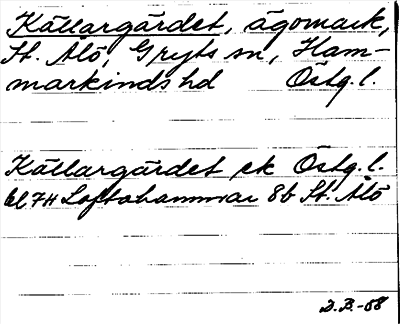 Källargärdet, ägomark,
St. Ålö, Gryts sn, Ham-
markinds hd Östg. l.
Källargärdet ek Östg. l.
bl 7H Loftahammar 8b St. Ålö
D.B.-68